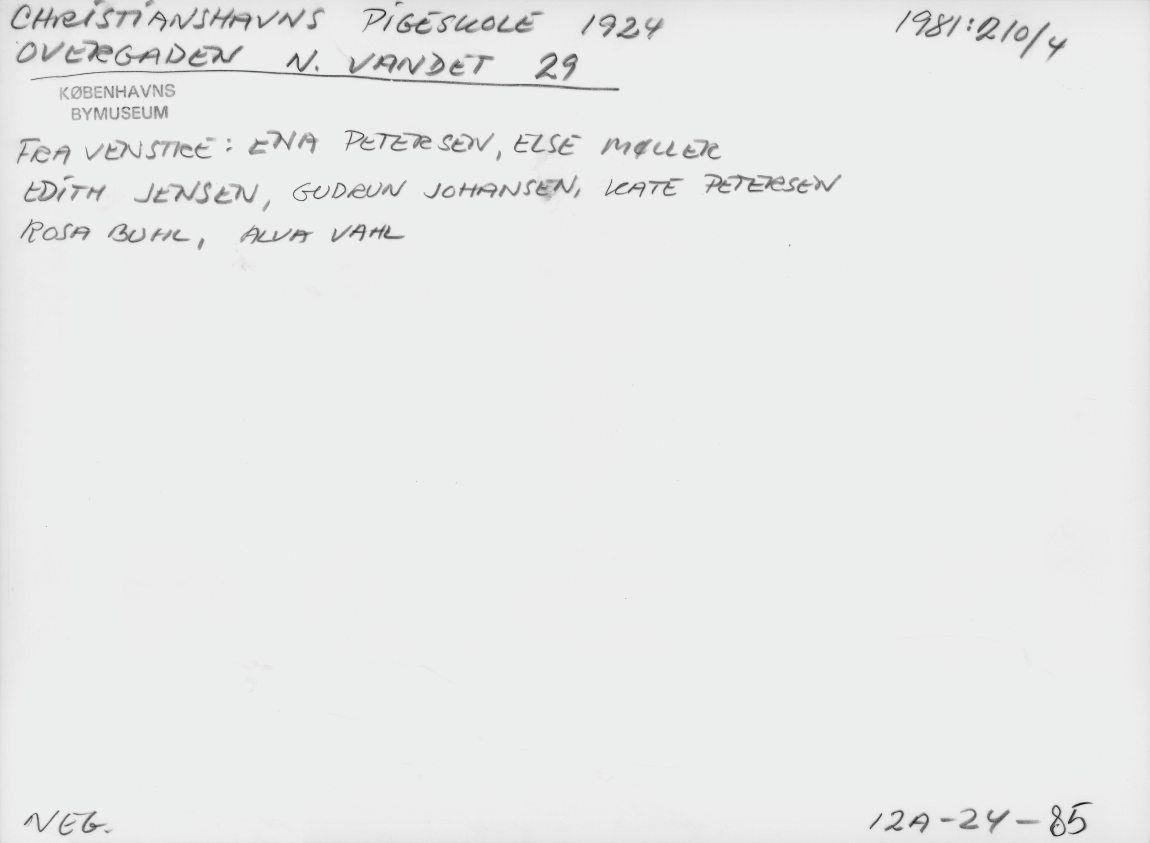 CHRISTIANSHAVNS PIGESKOLE 1924
1981:210/4
OVERGADEN N. VANDET 29
KØBENHAVNS
BYMUSEUM
FRA VENSTRE: ENA PETERSEN, ELSE MØLLER
EDITH JENSEN, GUDRUN JOHANSEN, KATE PETERSEN
ROSA BUHL, ALVA VAHL
NEG.
12A-24-85